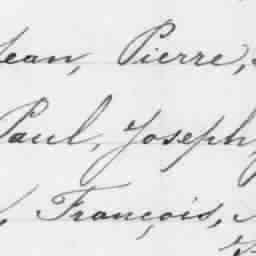 Jean, Pierre,
Paul, Joseph,
François,